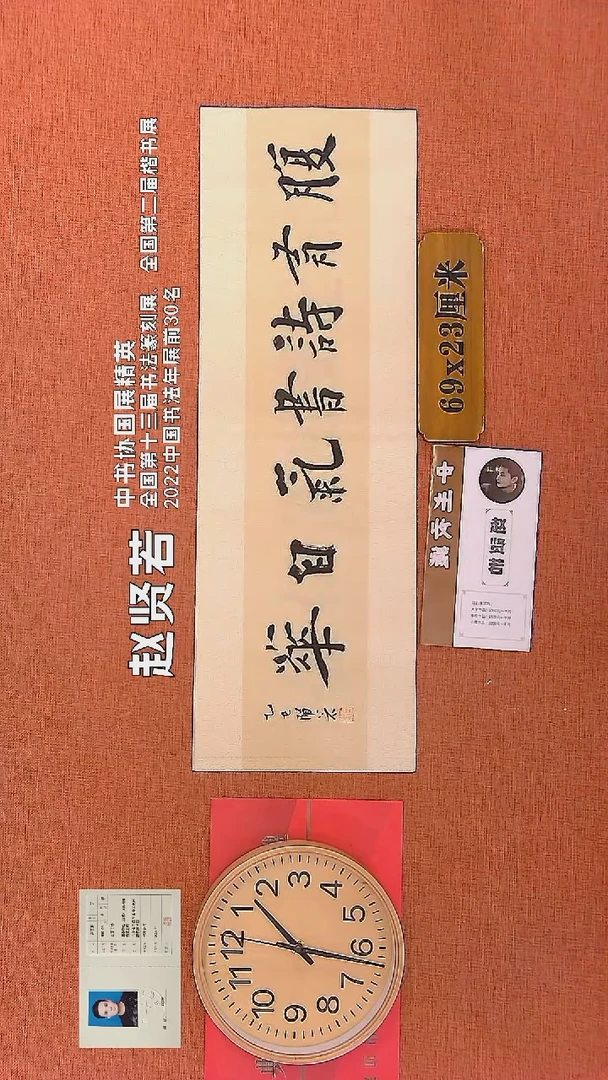 赵贤若
中书协国展精英
全国第十三届书法篆刻展、全国第二届楷书展
2022中国书法年展前30名
腹有詩書氣自華
乙巳賢若
69x23厘米
12
1
2
3
4
5
6
7
8
9
10
11